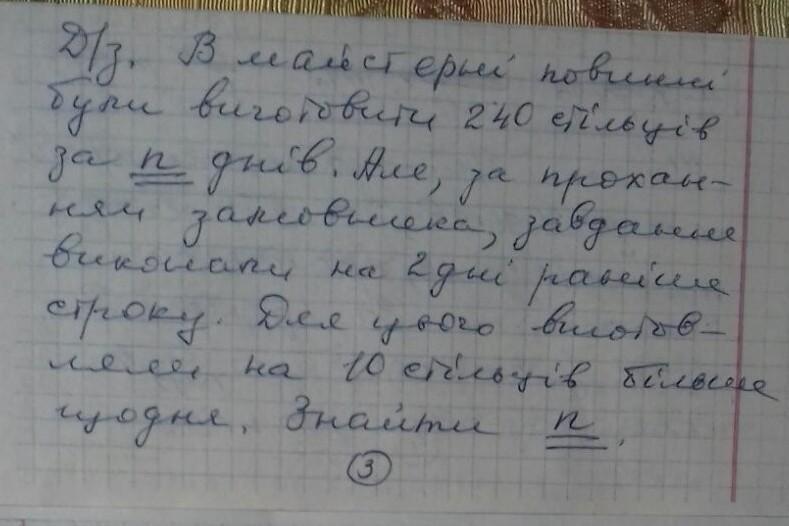 Д/з. В майстерні повинні
були виготовити 240 стільців
за n днів. Але, за прохан-
ням замовника, завдання
виконали на 2 дні раніше
строку. Для цього виготов-
ляли на 10 стільців більше
щодня. Знайти n.
3